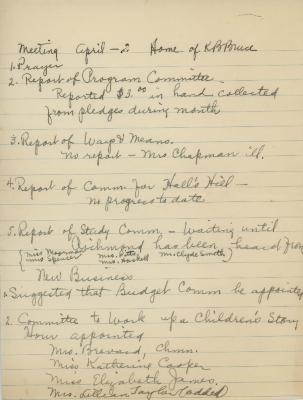 Meeting April - Home of K.B. Bruce
1. Prayer
2. Report of Program Committee.
Reported $3.00 in hand collected
from pledges during month
3. Report of Ways & Means.
No report - Mrs Chapman ill.
4. Report of Comm. for Hall's Hill -
no progress to date
5. Report of Study Comm. - Waiting until
Richmond has been heard from
(Miss Moorman Mrs. Pitts, Mr. Clyde Smith)
Mrs Spencer Mrs. Haskell
New Business
1. Suggested that Budget Comm be appointed
2. Committee to Work up a Children's Story
Hour appointed
Mrs. Brevard, Chmn.
Miss Katherine Cooper
Miss Elizabeth James.
Mrs. Lillian Taylor added